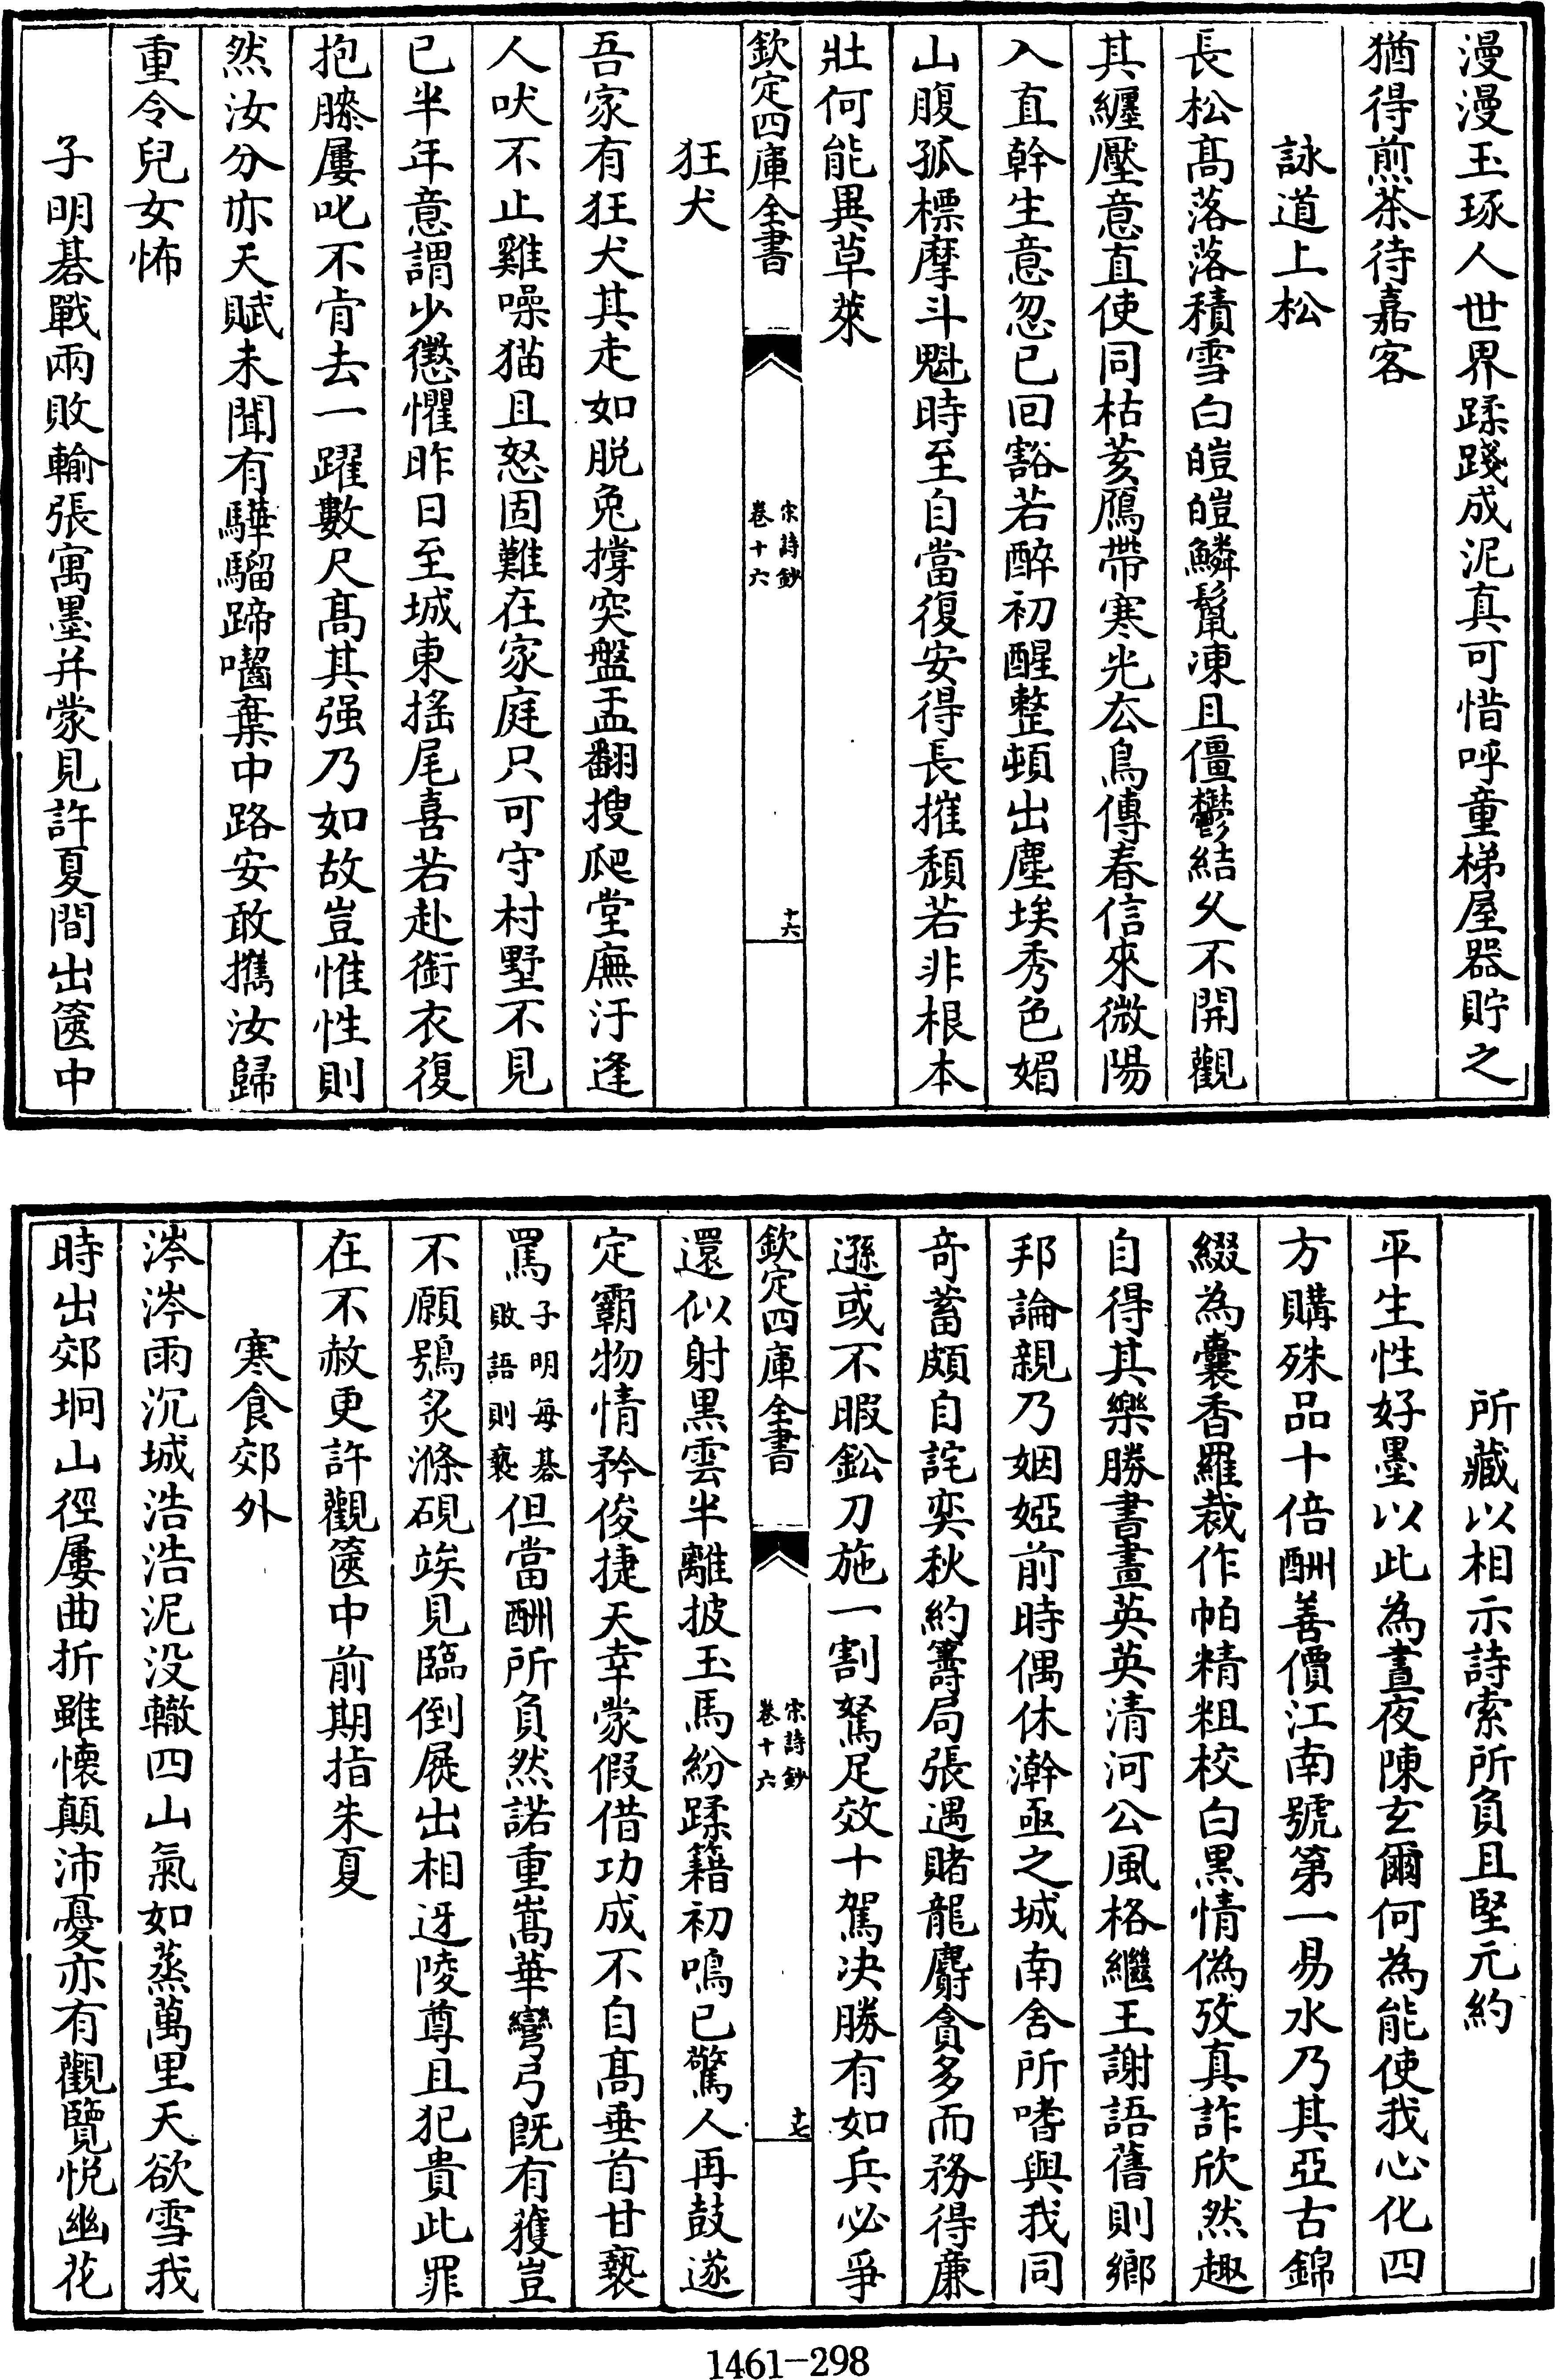 漫漫玉琢人世界蹂踐成泥真可惜呼童梯屋器貯之
猶得煎茶待嘉客
詠道上松
長松髙落落積雪白皚皚鱗鬛凍且僵鬱結乆不開觀
其纏壓意直使同枯荄鴈帶寒光去鳥傳春信來微陽
入直幹生意忽已回豁若醉初醒整頓出塵埃秀色媚
山腹孤標摩斗魁時至自當復安得長摧頽若非根本
壯何能異草萊
欽定四庫全書
宋詩鈔
卷十六
十六
狂犬
吾家有狂犬其走如脱兔撐突盤盂翻搜爬堂廡汙逢
人吠不止雞噪猫且怒固難在家庭只可守村墅不見
已半年意謂少懲懼昨日至城東搖尾喜若赴銜衣復
抱膝屢叱不肯去一躍數尺髙其强乃如故豈惟性則
然汝分亦天賦未聞有驊騮蹄嚙棄中路安敢攜汝歸
重令兒女怖
子明碁戰兩敗輸張寓墨并蒙見許夏間出篋中
所藏以相示詩索所負且堅元約
平生性好墨以此為晝夜陳玄爾何為能使我心化四
方購殊品十倍酬善價江南號第一易水乃其亞古錦
綴為囊香羅裁作帕精粗校白黒情偽攷真詐欣然趣
自得其樂勝書畫英英清河公風格繼王謝語舊則鄉
邦論親乃姻婭前時偶休澣亟之城南舍所嗜與我同
竒蓄頗自詫奕秋約籌局張遇賭龍麝貪多而務得廉
遜或不暇鉛刀施一割駑足效十駕决勝有如兵必爭
欽定四庫全書
宋詩鈔
卷十六
十七
還似射黒雲半離披玉馬紛蹂籍初鳴已驚人再鼓遂
定霸物情矜俊捷天幸蒙假借功成不自髙垂首甘褻
罵子明每碁敗語則褻但當酬所負然諾重嵩華彎弓既有獲豈
不願鴞炙滌硯竢見臨倒屐出相迓陵尊且犯貴此罪
在不赦更許觀篋中前期指朱夏
寒食郊外
涔涔雨沉城浩浩泥没轍四山氣如蒸萬里天欲雪我
時出郊坰山徑屢曲折雖懷顛沛憂亦有觀覽悦幽花
1461-298